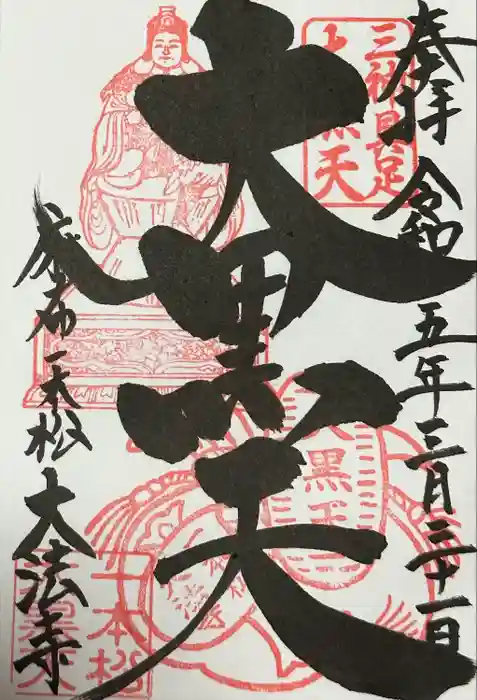 奉拝 令和五年三月三十一日
三神具足
大黒天
大黒天
麻布一本松 大法寺
一本松